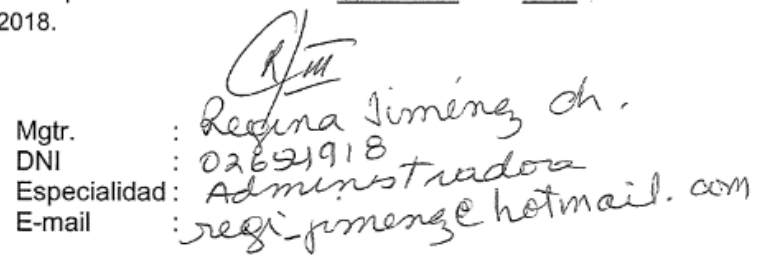 2018.
Mgtr. : Regina Jiménez Ch.
DNI : 02651918
Especialidad : Administradora
E-mail : regi_jimenez@hotmail.com